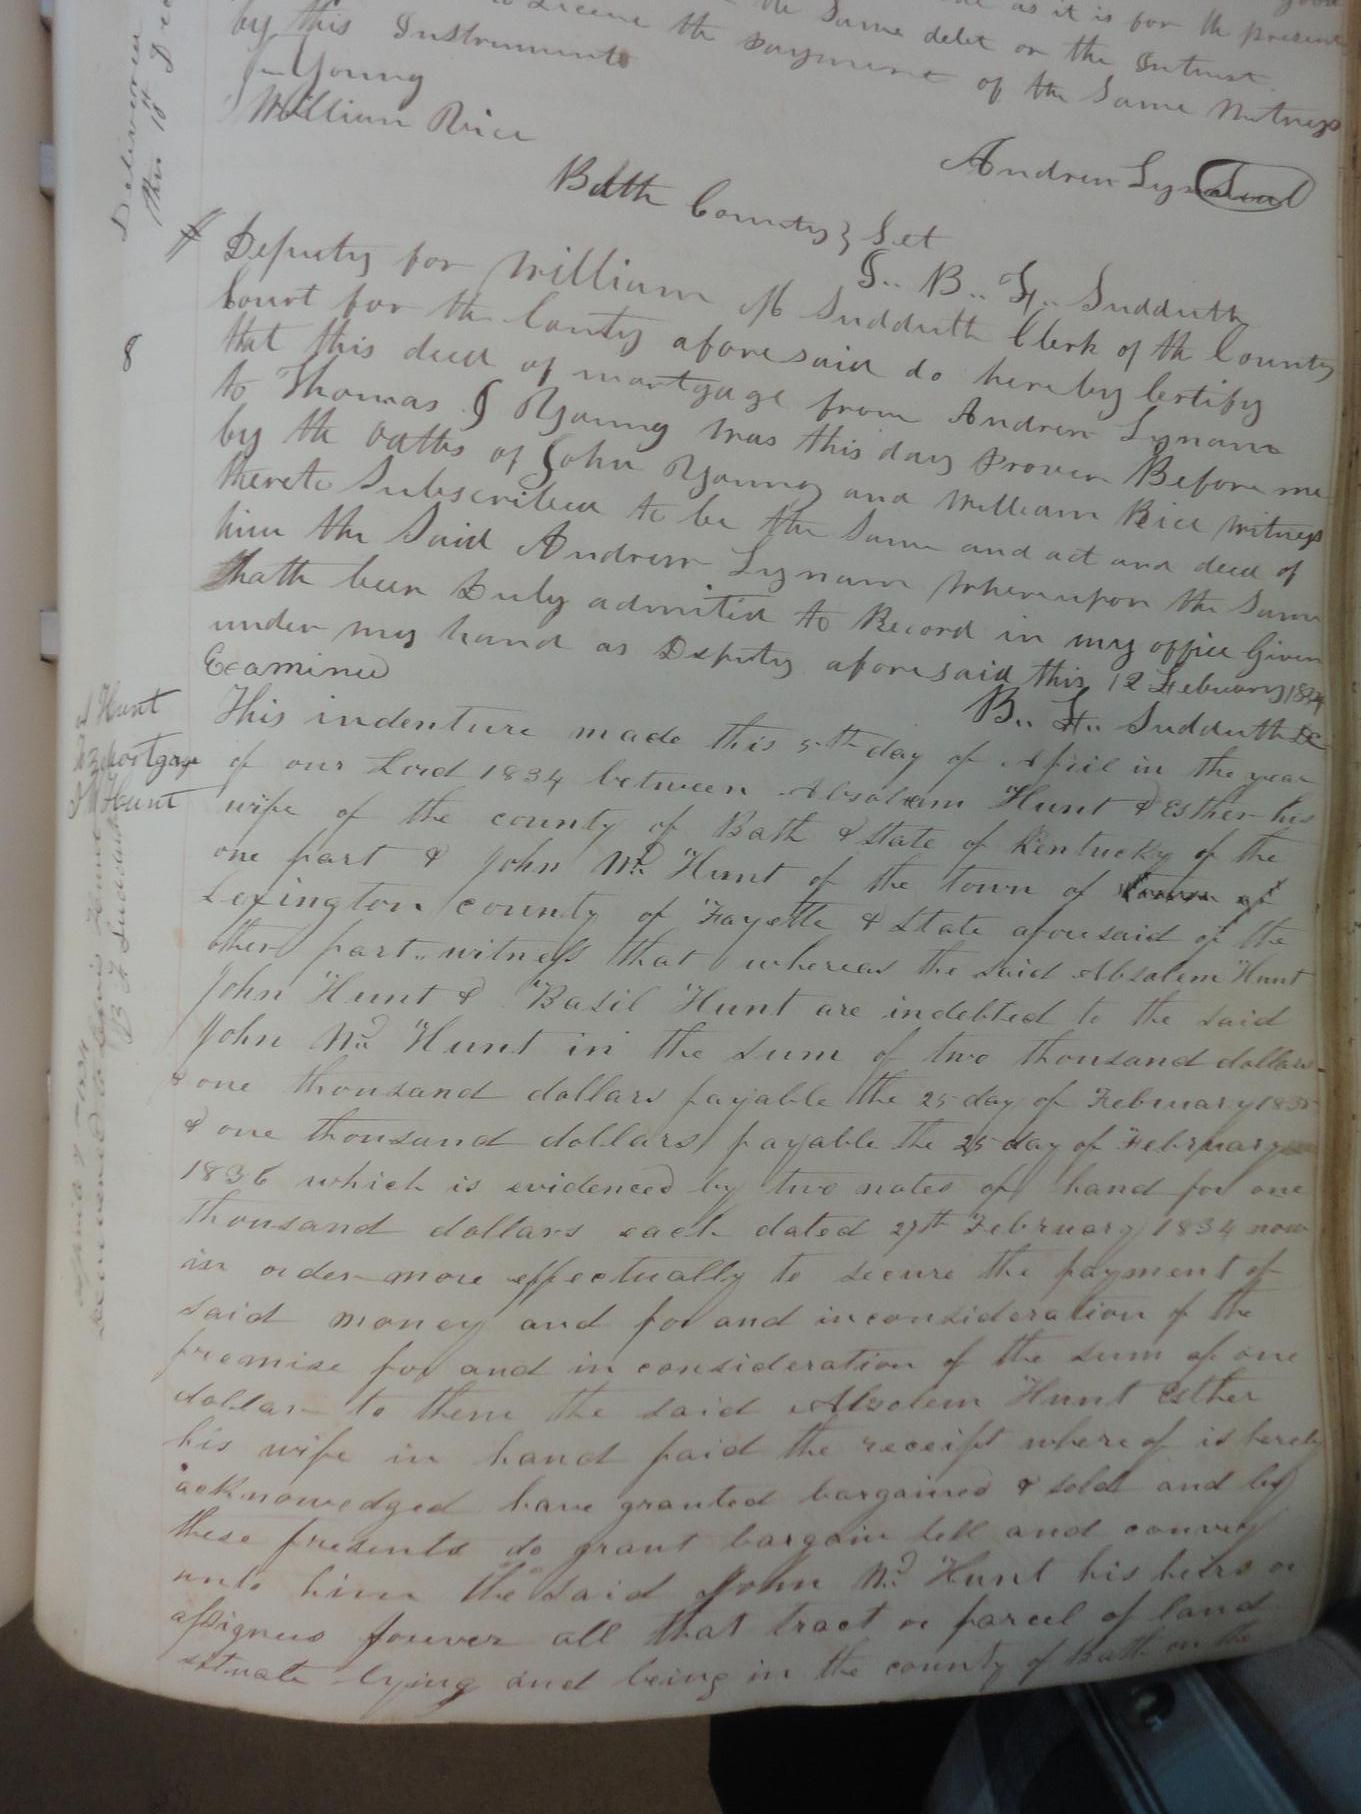 as it is for the present
the same debt or the Intrust
by this Instrument the payment of the Same Witness
J Young
William Rice
Andrew Lynam Seal
Bath County } Sct
I.. B.. F.. Sudduth
Deputy for William M Sudduth Clerk of the County
Court for the County aforesaid do hereby Certify
that this deed of mortgage from Andrew Lynam
to Thomas J Young was this day proven Before me
by the oaths of John Young and William Rice Witness
thereto Subscribed to be the Same and act and deed of
him the Said Andrew Lynam Whereupon the Same
hath been Duly admitted to Record in my office Given
under my hand as Deputy aforesaid this 12 February 1834
Examined
B.. F.. Sudduth DC
A Hunt
to } Mortgage
J W Hunt
This indenture made this 5th day of April in the year
of our Lord 1834 between Absolem Hunt & Esther his
wife of the county of Bath & State of Kentucky of the
one part & John Wd. Hunt of the town of
Lexington county of Fayette & State aforesaid of the
other part.. witness that whereas the said Absolem Hunt
John Hunt & Basil Hunt are indebted to the said
John Wd. Hunt in the sum of two thousand dollars
& one thousand dollars payable the 25 day of February 1835
& one thousand dollars payable the 25 day of February
1836 which is evidenced by two notes of hand for one
thousand dollars each dated 27th February 1834 now
in order more effectually to secure the payment of
said money and for and inconsideration of the
premise for and in consideration of the sum of one
dollar to them the said Absolem Hunt Esther
his wife in hand paid the receipt where of is hereby
acknowedged have granted bargained & sold and by
these presents do grant bargain sell and convey
unto him the said John Wd. Hunt his heirs or
assignes forever all that tract or parcel of land
situate lying and being in the county of Bath on the
Delivered
8
B F Sudduth